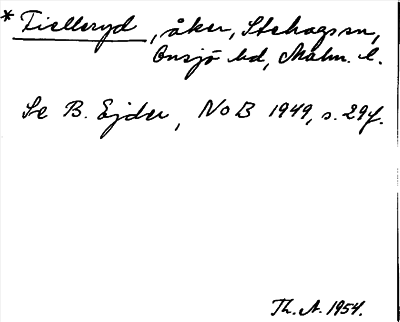 * Tielleryd, åker, Stehagssn,
Onsjö hd, Malm. l.
Se B. Ejder, NoB 1949, s. 29f.
Th. A. 1954.